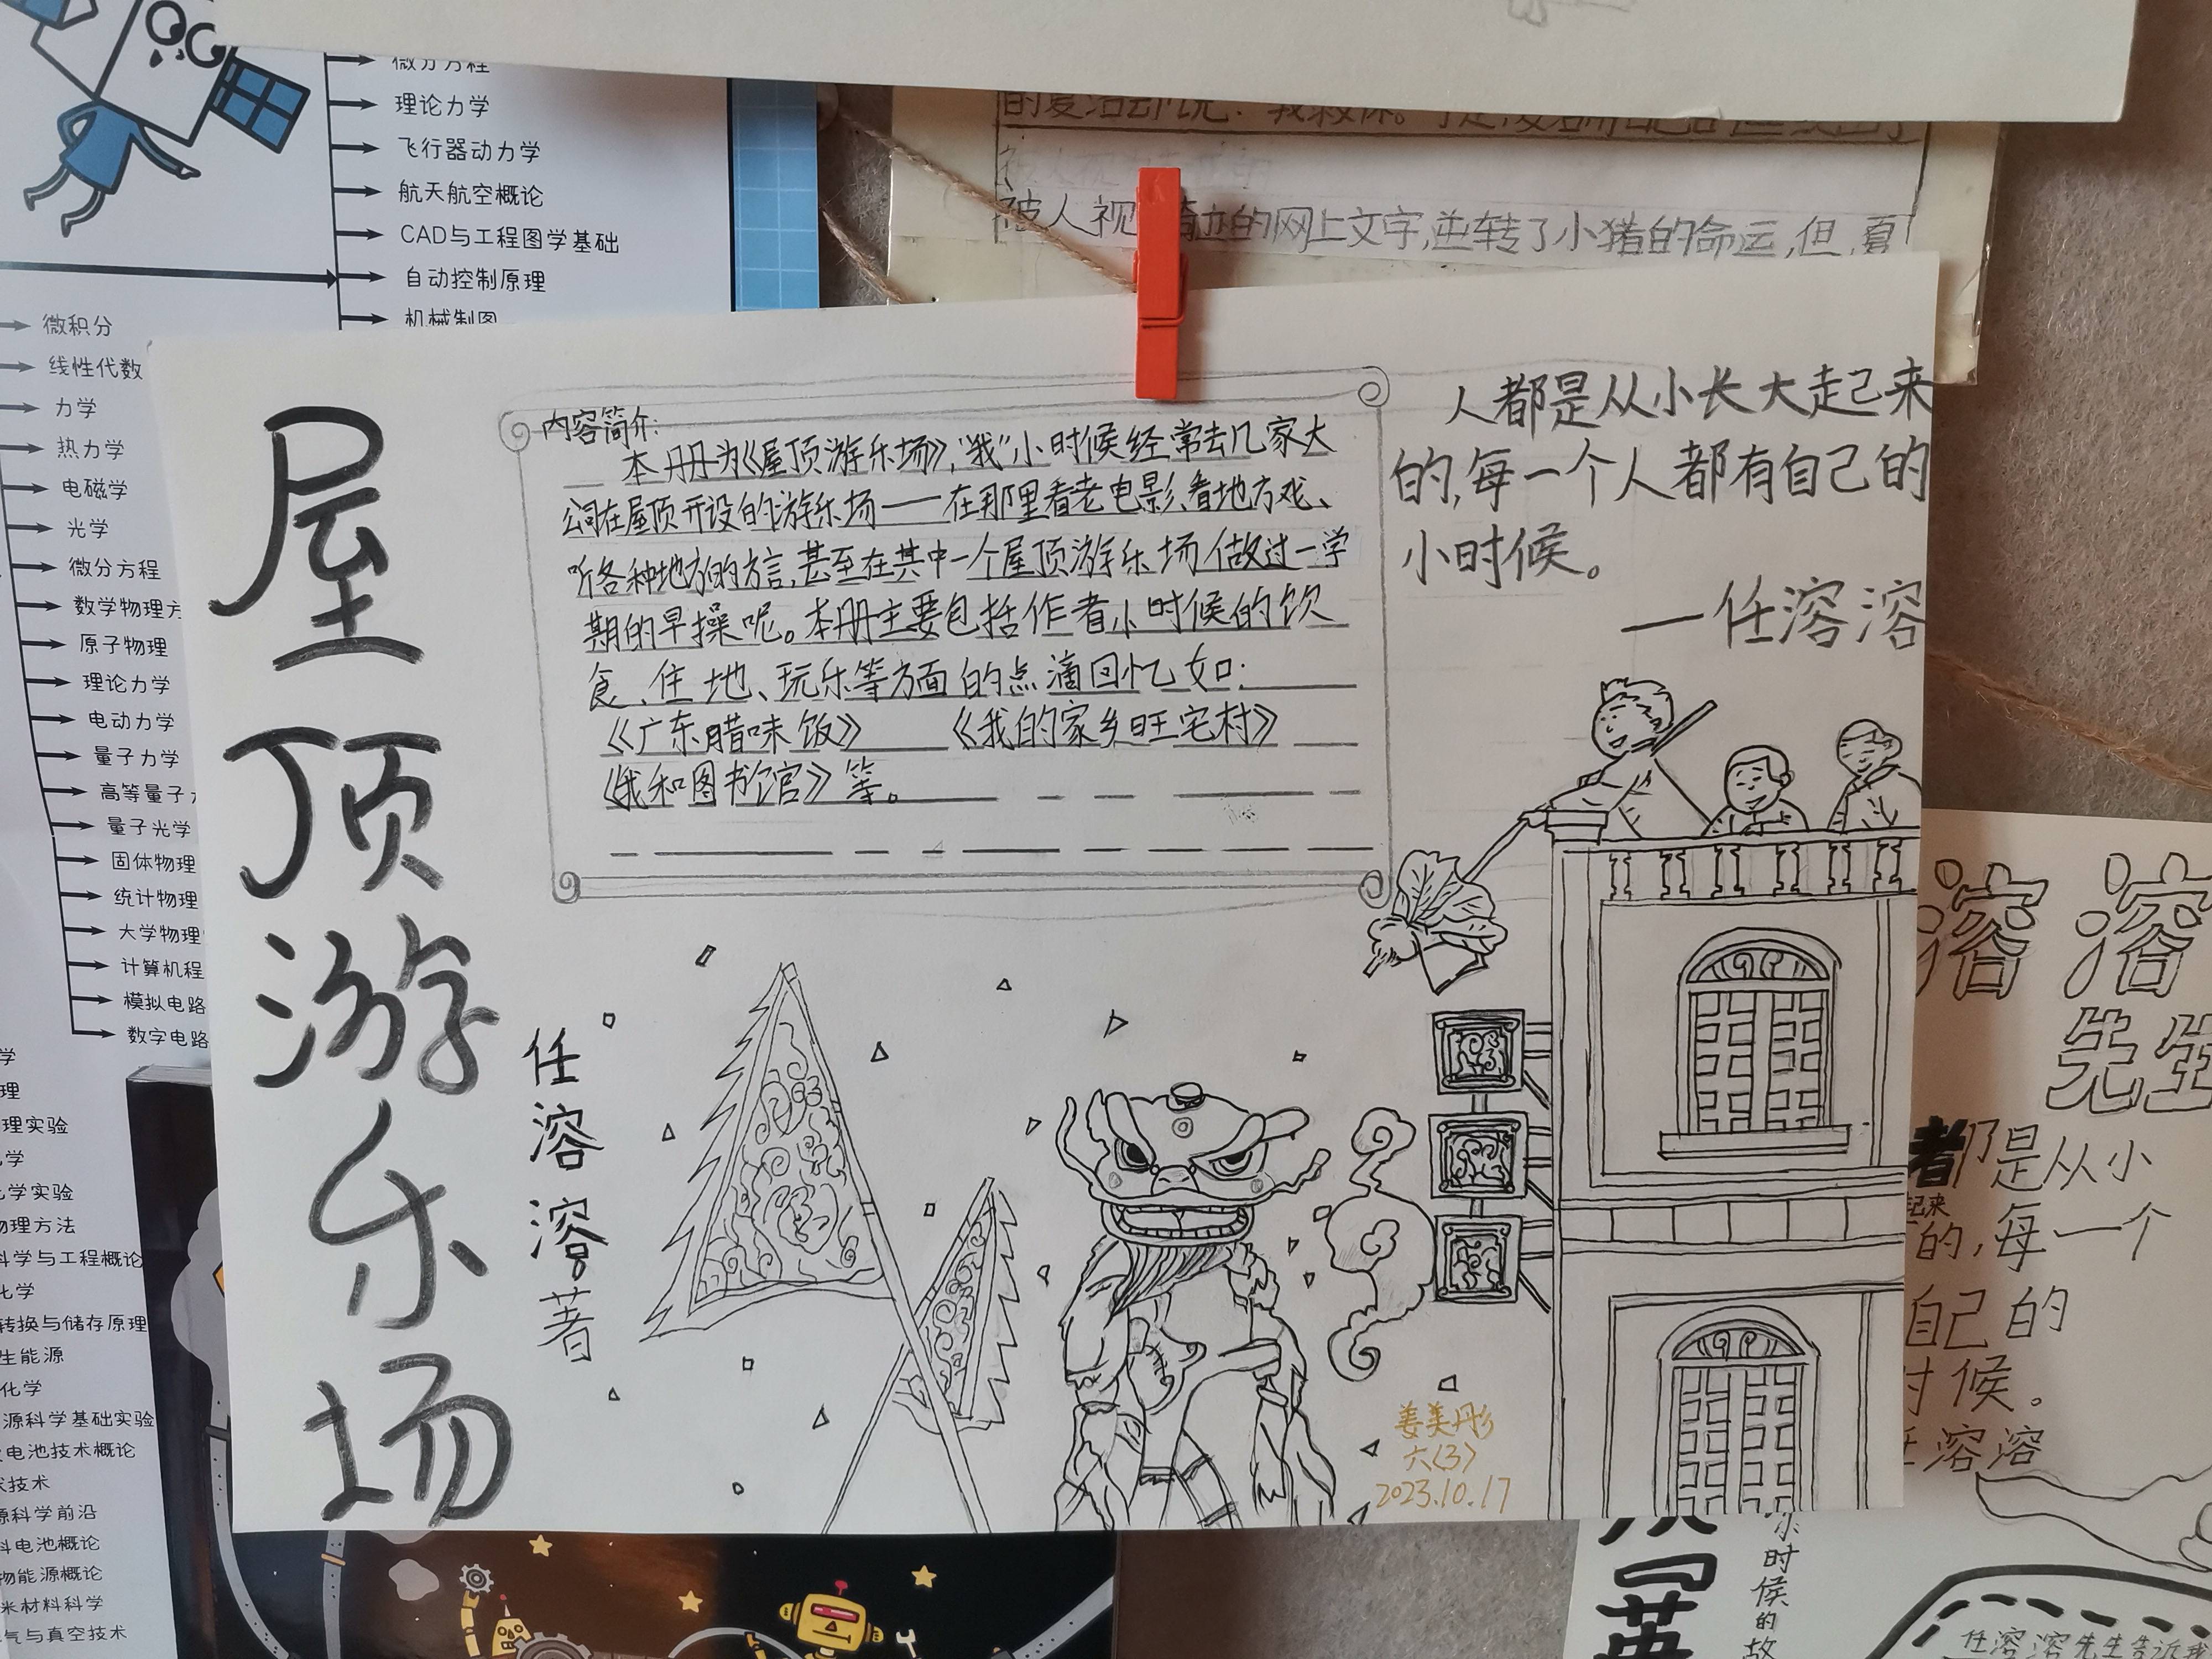 微分方程
理论力学
飞行器动力学
航天航空概论
CAD与工程图学基础
自动控制原理
机械制图
微积分
线性代数
力学
热力学
电磁学
光学
微分方程
数学物理方
原子物理
理论力学
电动力学
量子力学
高等量子
量子光学
固体物理
统计物理
大学物理
计算机程
模拟电路
数字电路
学
理
理实验
学
化学实验
物理方法
科学与工程概论
化学
转换与储存原理
生能源
化学
源科学基础实验
电池技术概论
技术
源科学前沿
料电池概论
物能源概论
米材料科学
气与真空技术
被人视 奇迹的网上文字,逆转了小猪的命运,但,夏
屋顶游乐场
任溶溶著
内容简介:
本册为《屋顶游乐场》,“我”小时候经常去几家大
公司在屋顶开设的游乐场——在那里看老电影、看地方戏、
听各种地方的方言,甚至在其中一个屋顶游乐场做过一学
期的早操呢。本册主要包括作者小时候的饮
食、住地、玩乐等方面的点滴回忆如:
《广东腊味饭》 《我的家乡旺宅村》
《我和图书馆》等。
人都是从小长大走起来
的,每一个人都有自己的
小时候。
—任溶溶
姜美彤
六(3)
2023.10.17
溶溶
先生
都是从小
起来
的,每一个
自己的
时候。
任溶溶
英
小时候的故
任溶溶先生告诉我